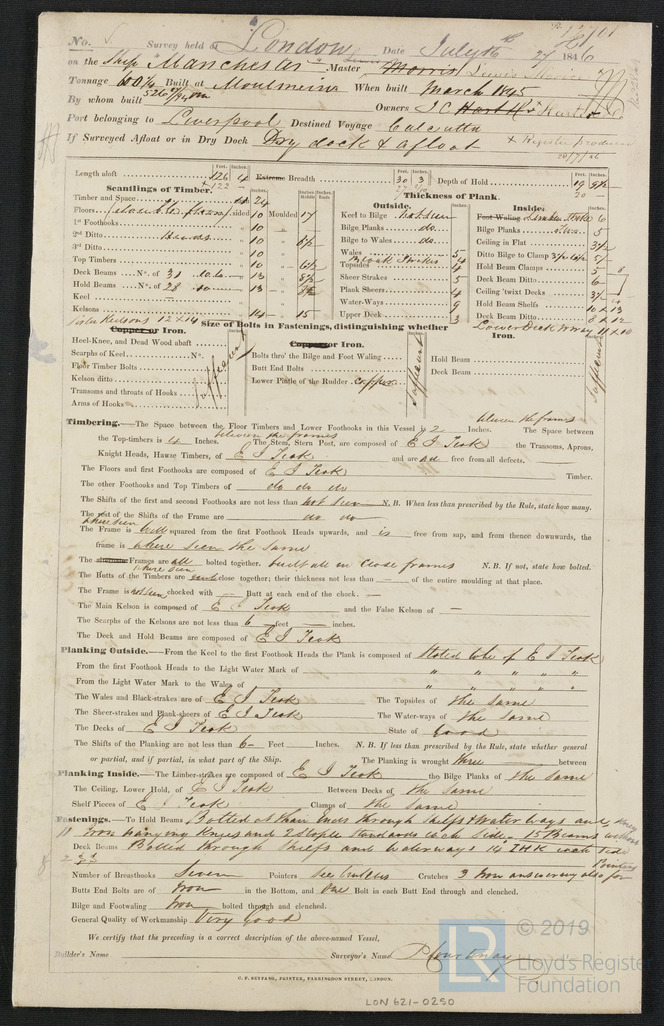 No. 5 Survey held at London Date July 16th 1846
on the Ship "Manchester" Master Morris Lewis Morice
Tonnage 601 3/4 Built at Moulmein When built March 1845
By whom built Owners J C Hart
Port belonging to Liverpool Destined Voyage Calcutta
If Surveyed Afloat or in Dry Dock Dry dock & afloat
Length aloft 126 4 Extreme Breadth 30 3 Depth of Hold 19
Scantlings of Timber. Thickness of Plank.
Outside. Inside.
Timber and Space 24
Floors sided 10 Moulded 17
1st Foothooks 10
2nd Ditto 10
3rd Ditto 10
Top Timbers 10
Deck Beams No. of 31
Hold Beams No. of 28 13
Keel
Kelsons 14 15
Sister Kelsons 12 x 14
Keel to Bilge not seen
Bilge Planks do.
Bilge to Wales do.
Wales 5
Black Strakes
Topsides 4
Sheer Strakes 5
Plank Sheers 4
Water-Ways 9
Upper Deck 3
Foot Waling Limber Strake 6
Bilge Planks 5
Ceiling in Flat
Ditto Bilge to Clamp
Hold Beam Clamps 5
Deck Beam Ditto 6
Ceiling 'twixt Decks
Hold Beam Shelfs 10 x 13
Deck Beam Ditto 8 x 12
Lower Deck W way 11 x 10
Size of Bolts in Fastenings, distinguishing whether
Copper or Iron. Copper or Iron. Iron.
Heel-Knee, and Dead Wood abaft
Scarphs of Keel No.
Floor Timber Bolts
Kelson ditto
Transoms and throats of Hooks
Arms of Hooks
Bolts thro' the Bilge and Foot Waling
Butt End Bolts
Lower Pintle of the Rudder copper
Hold Beam
Deck Beam
Timbering.—The Space between the Floor Timbers and Lower Foothooks in this Vessel is 2 Inches. between the frames The Space between
the Top-timbers is 4 Inches. between the frames The Stem, Stern Post, are composed of E I Teak the Transoms, Aprons,
Knight Heads, Hawse Timbers, of E I Teak and are all free from all defects.
The Floors and first Foothooks are composed of E I Teak Timber.
The other Foothooks and Top Timbers of do do do
The Shifts of the first and second Foothooks are not less than not seen N. B. When less than prescribed by the Rule, state how many.
The rest of the Shifts of the Frame are do do
where seen
The Frame is well squared from the first Foothook Heads upwards, and is free from sap, and from thence downwards, the
frame is where seen the same
The Frames are all bolted together. built all in close frames N. B. If not, state how bolted.
where seen
The Butts of the Timbers are close together; their thickness not less than — of the entire moulding at that place.
The Frame is not seen chocked with — Butt at each end of the chock. —
The Main Kelson is composed of E I Teak and the False Kelson of —
The Scarphs of the Kelsons are not less than 6 feet inches.
The Deck and Hold Beams are composed of E I Teak
Planking Outside.—From the Keel to the first Foothook Heads the Plank is composed of Stated to be of E I Teak
From the first Foothook Heads to the Light Water Mark of " " " " "
From the Light Water Mark to the Wales of " " " " "
The Wales and Black-strakes are of E I Teak The Topsides of the same
The Sheer-strakes and Plank-sheers of E I Teak The Water-ways of the same
The Decks of E I Teak State of Good
The Shifts of the Planking are not less than 6 Feet Inches. N. B. If less than prescribed by the Rule, state whether general
or partial, and if partial, in what part of the Ship. The Planking is wrought three between
Planking Inside.—The Limber-strakes are composed of E I Teak the Bilge Planks of the same
The Ceiling, Lower Hold, of E I Teak Between Decks of the same
Shelf Pieces of E I Teak Clamps of the same
Fastenings.—To Hold Beams Bolted at their Ends through Shelfs & Water ways and
Iron hanging Knees and 2 Staple Standards each side. 15 Beams
Deck Beams Bolted through Shelfs and Waterways each side
Number of Breasthooks Seven Pointers See Crutches Crutches 3 Iron answering also for Pointers
Butts End Bolts are of Iron in the Bottom, and One Bolt in each Butt End through and clenched.
Bilge and Footwaling Iron bolted through and clenched.
General Quality of Workmanship Very Good
We certify that the preceding is a correct description of the above-named Vessel,
Builder's Name Surveyor's Name P Courtenay
C. F. SEYFANG, PRINTER, FARRINGDON STREET, LONDON.
LON 621-0250
© 2019
LR
Lloyd's Register
Foundation